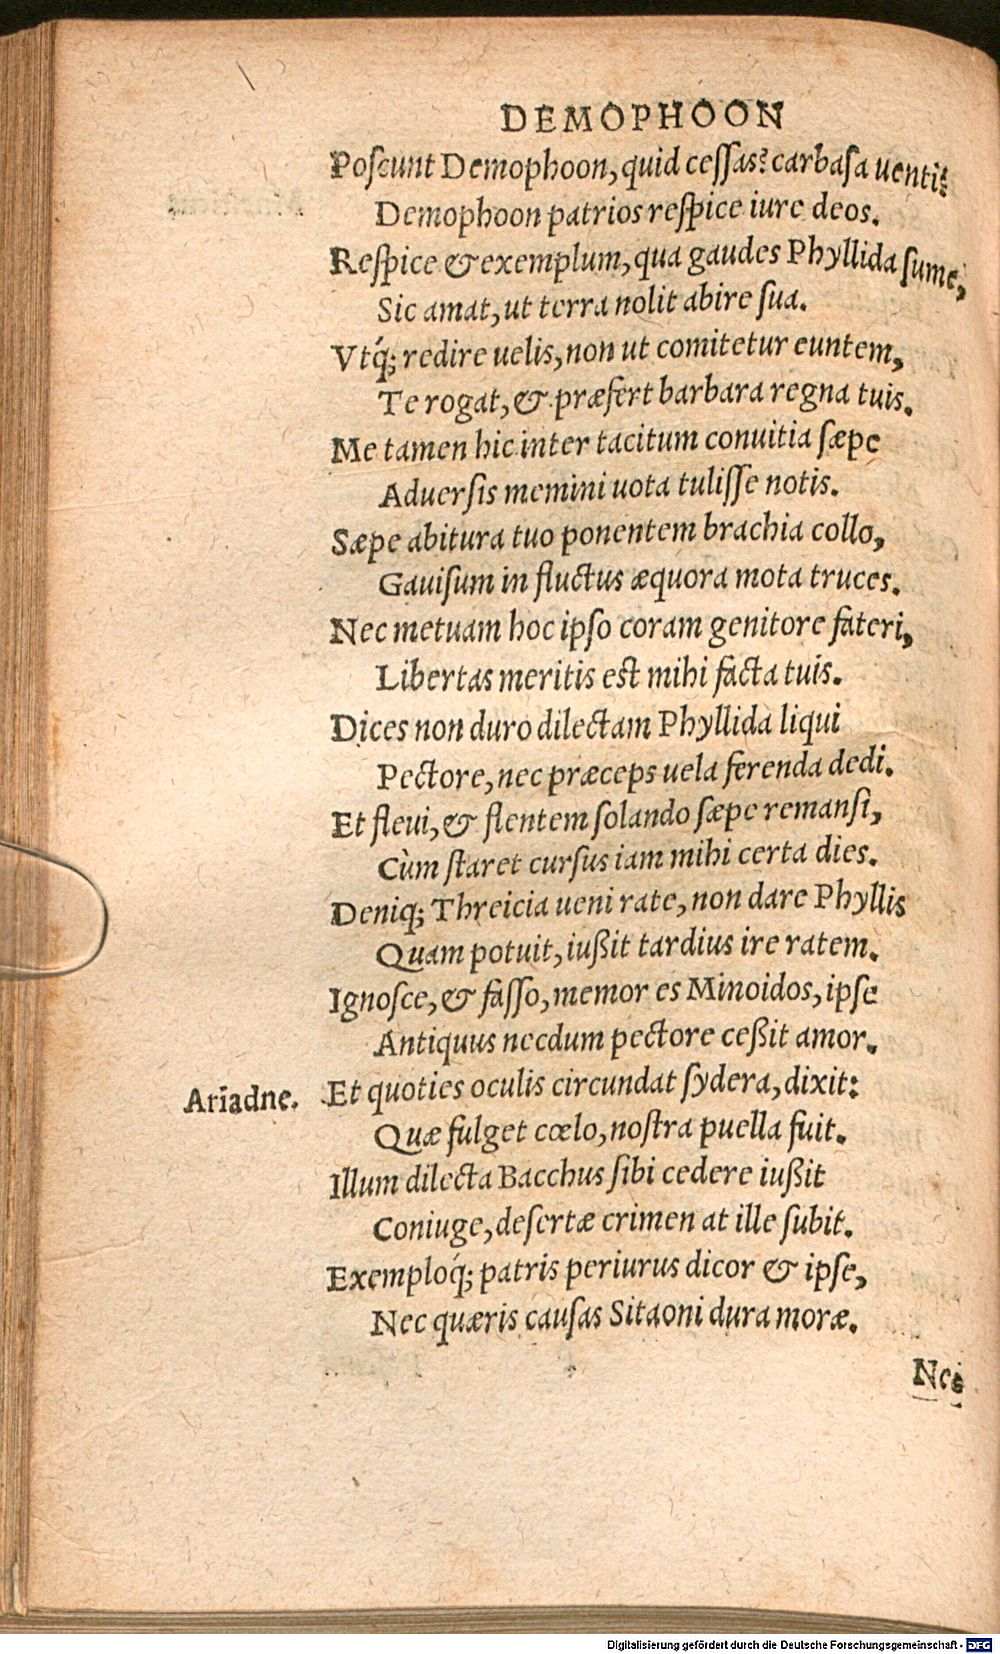 DEMOPHOON
Poſcunt Demophoon, quid ceſſas? carbaſa uenti?
Demophoon patrios reſpice iure deos.
Reſpice & exemplum, qua gaudes Phyllida ſume,
Sic amat, ut terra nolit abire ſua.
Vtq́; redire uelis, non ut comitetur euntem,
Te rogat, & præfert barbara regna tuis.
Me tamen hic inter tacitum conuitia ſæpe
Aduerſis memini uota tuliſſe notis.
Sæpe abitura tuo ponentem brachia collo,
Gauiſum in fluctus æquora mota truces.
Nec metuam hoc ipſo coram genitore fateri,
Libertas meritis eſt mihi facta tuis.
Dices non duro dilectam Phyllida liqui
Pectore, nec præceps uela ferenda dedi.
Et fleui, & flentem ſolando ſæpe remanſi,
Cùm ſtaret curſus iam mihi certa dies.
Deniq; Threicia ueni rate, non dare Phyllis
Quam potuit, iußit tardius ire ratem.
Ignoſce, & faſſo, memor es Minoidos, ipſe
Antiquus necdum pectore ceßit amor.
Ariadne. Et quoties oculis circundat ſydera, dixit:
Quæ fulget cœlo, noſtra puella fuit.
Illum dilecta Bacchus ſibi cedere iußit
Coniuge, deſertæ crimen at ille ſubit.
Exemploq́; patris periurus dicor & ipſe,
Nec quæris cauſas Sitaoni dura moræ.
Nec
Digitalisierung gefördert durch die Deutsche Forschungsgemeinschaft - DFG